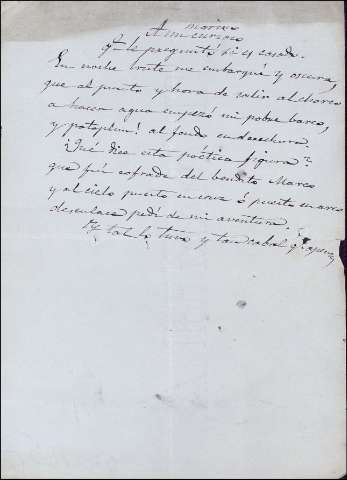 A un curioso
Que le preguntó si es casado.
En noche triste me embarqué y oscura,
que al punto y hora de salir al charco
a hacer agua empezó mi pobre barco,
y ¡pataplum! al fondo en derechura.
¿Qué dice esta poética figura?
que fuí cofrade del bendito Marco
y al cielo puesto en cruz ó puesto en arco
desenlace pedí de mi aventura.
Y tal la tuve y tan cabal